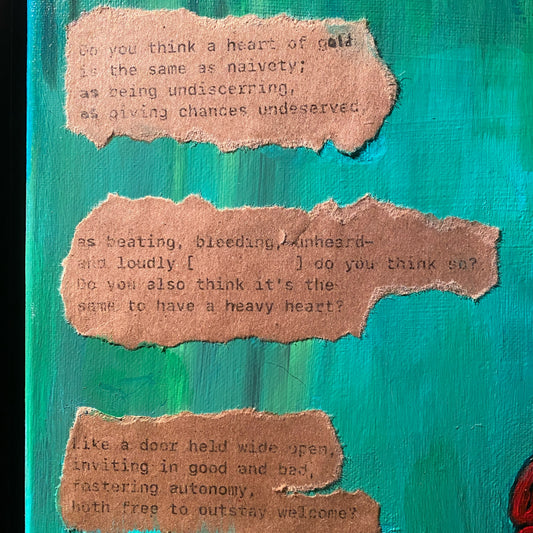 Do you think a heart of gold
is the same as naivety;
as being undiscerring,
as giving chances undeserved
as beating, bleeding, unheard-
and loudly [ ] do you think so?
Do you also think it's the
same to have a heavy heart?
Like a door held wide open,
inviting in good and bad,
fostering autonomy,
both free to outstay welcome?